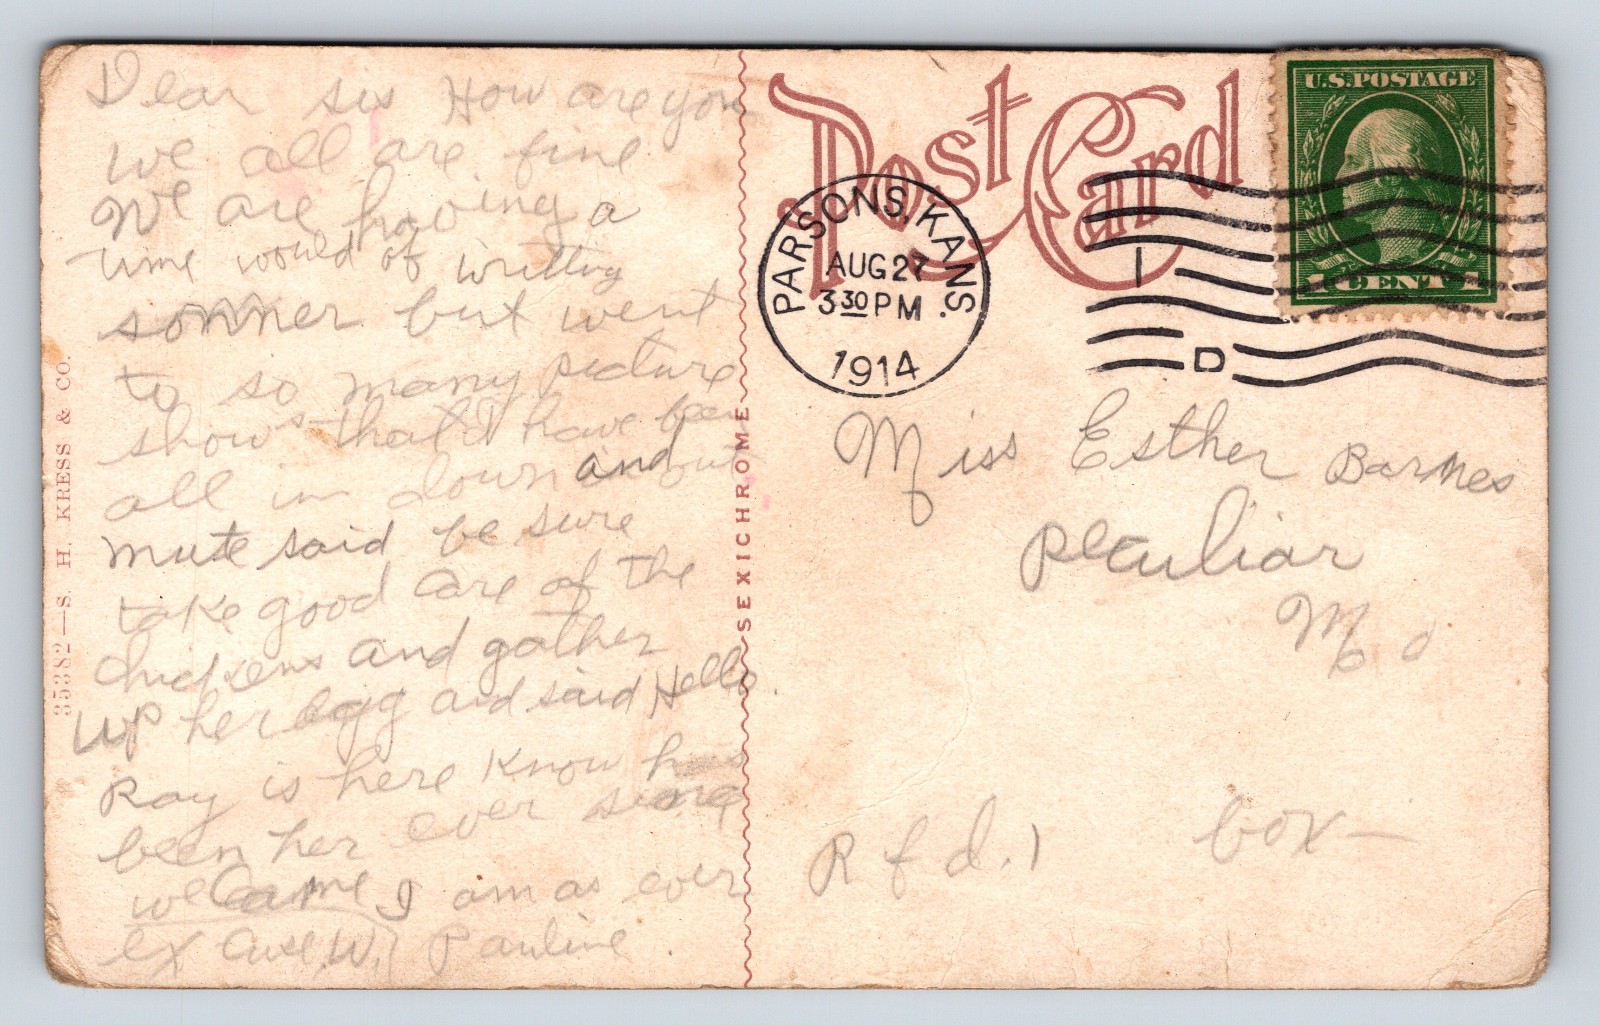 Dear sis How are you
we all are fine
We are having a
time would of writting
sonner but went
to so many picture
shows that I have been
all in down and out
Mute said be sure
take good care of the
chickens and gather
up her egg and said Hello
Ray is here know has
been her ever since
we came I am as ever
ex cuse W. Pauline
35382—S. H. KRESS & CO.
SEXICHROME
Post Card
U.S.POSTAGE
1 CENT 1
PARSONS, KANS.
AUG 27
3 30 PM
1914
1
D
Miss Esther Barnes
Peculiar
Mo
R f d. 1 box —